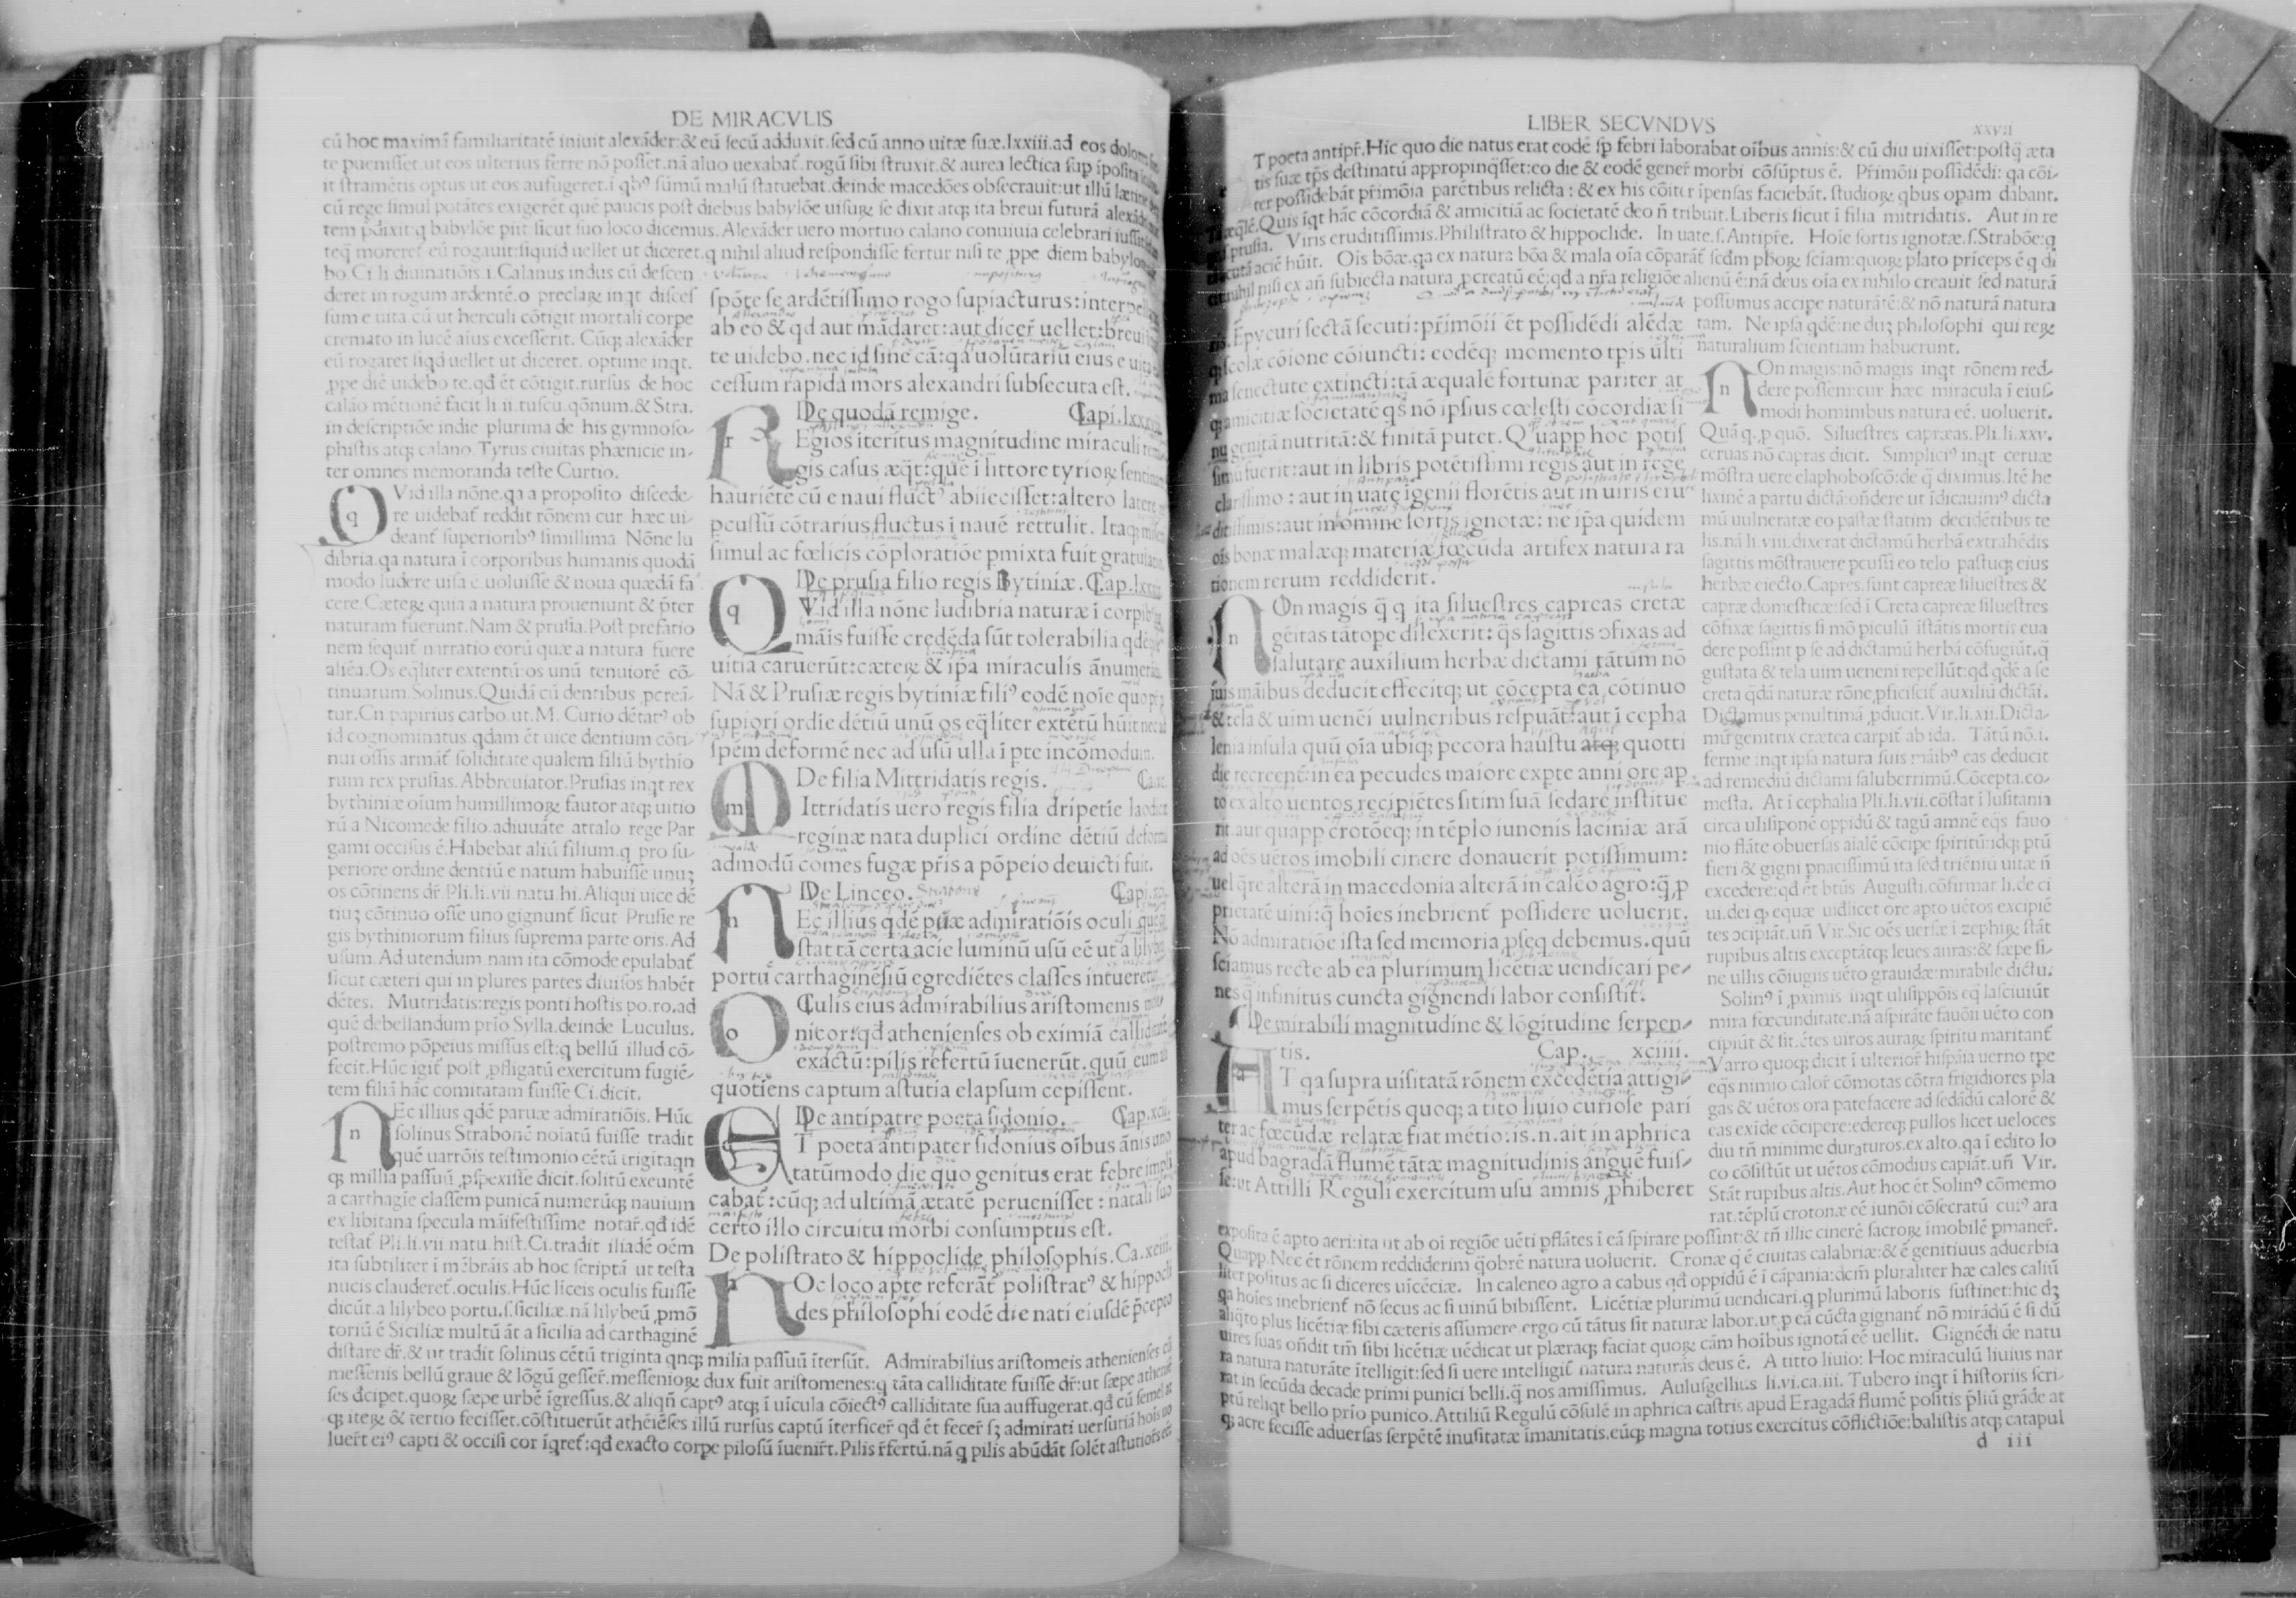 DE MIRACVLIS
cū hoc maximā familiaritatē iniuit alexāder:& eū secū adduxit.sed cū anno uitæ suæ.lxxiii.ad eos dolores
te puenisset.ut eos ulterius ferre nō posset.nā aluo uexabat̄.rogū sibi struxit.& aurea lectica sup īposita
it stramētis optus ut eos aufugeret.ī qbꝰ sūmū malū statuebat.deinde macedōes obsecrauit:ut illū lætitiæ
cū rege simul potātes exigerēt quē paucis post diebus babylōe uisuꝝ se dixit atqꝫ ita breui futurā
tem pdixit:q babylōe piit sicut suo loco dicemus.Alexāder uero mortuo calano conuiuia celebrari
teq̄ moreret̄ cū rogauit:siquid uellet ut diceret.q nihil aliud respondisse fertur nisi te ꝓpe diem
bo.Ci.li.diuinatiōis.i.Calanus indus cū descen
deret in rogum ardentē.o preclaꝝ inqt disces
sum e uita cū ut herculi cōtigit mortali corpe
cremato in lucē aius excesserit. Cūqꝫ alexāder
eū rogaret siqd uellet ut diceret. optime inqt.
ꝓpe diē uidebo te.qd ēt cōtigit.rursus de hoc
calāo mētionē facit li.ii.tuscu.qōnum.& Stra.
in descriptiōe indie plurima de his gymnoso-
phistis atqꝫ calano.Tyrus ciuitas phænicie in-
ter omnes memoranda teste Curtio.
QVid illa nōne.qa a proposito discede-
re uidebat̄ reddit rōnem cur hæc ui-
deant̄ superioribꝰ simillima. Nōne lu
dibria.qa natura ī corporibus humanis quodā
modo ludere uisa ē.uoluisse & noua quædā fa
cere.Cæteꝝ quia a natura proueniunt & p̄ter
naturam fuerunt.Nam & prusia.Post prefatio
nem sequit̄ narratio eorū quæ a natura fuere
aliēa.Os eq̄liter extentū:os unū tenuiorē cō-
tinuarum.Solinus.Quidā cū dentibus ꝓcreā-
tur.Cn.papirius carbo.ut.M. Curio dētatꝰ ob
id cognominatus.qdam ēt uice dentium cōti-
nui ossis armāt̄ soliditate qualem filiū bythio
rum rex prusias.Abbreuiator.Prusias inqt rex
bythiniæ oīum humillimoꝝ fautor atqꝫ uitio
rū a Nicomede filio.adiuuāte attalo rege Par
gami occisus ē.Habebat aliū filium.q pro su-
periore ordine dentiū e natum habuisse unuꝫ
os cōtinens dr̄. Pli.li.vii.natu.hi.Aliqui uice dē
tiuꝫ cōtinuo osse uno gignunt̄ sicut Prusie re
gis bythiniorum filius suprema parte oris. Ad
usum.Ad utendum.nam ita cōmode epulabat̄
sicut cæteri qui in plures partes diuisos habēt
dētes. Mutridatis:regis ponti hostis po.ro.ad
quē debellandum prīo Sylla.deinde Luculus.
postremo pōpeius missus est:q bellū illud cō-
fecit.Hūc igit̄ post ꝓfligatū exercitum fugiē-
tem filiā hāc comitatam fuisse Ci.dicit.
NEc illius qdē paruæ admiratiōis. Hūc
solinus Strabonē noīatū fuisse tradit
quē uarrōis testimonio cētū trigitaqn
qꝫ millia passuū ꝓspexisse dicit.solitū exeuntē
a carthagīe classem punicā numerūqꝫ nauium
ex libitana specula māifestissime notar̄.qd idē
testat̄ Pli.li.vii.natu.hist.Ci.tradit iliadē oēm
ita subtiliter ī mēbrāis ab hoc scriptā ut testa
nucis clauderet̄.oculis.Hūc līceis oculis fuisse
dicūt.a lilybeo portu.s.siciliæ.nā lilybeū ꝓmō
toriū ē Siciliæ multū āt a sicilia ad carthaginē
spōte se ardētissimo rogo supiacturus:
ab eo & qd aut mādaret:aut dicer̄ uellet:
te uidebo.nec id sine cā:qa uolūtariū eius e
cessum rapida mors alexandri subsecuta est.
De quodā remige. Capi.
REgios īteritus magnitudine miraculi
gis casus æq̄t:quē ī littore tyrioꝝ
hauriētē cū e naui fluctꝰ abiiecisset:altero latere
pcussū cōtrarius fluctus ī nauē rettulit. Itaqꝫ
simul ac fœlicis cōploratiōe pmixta fuit
De prusia filio regis Bytiniæ. Cap.
QVid illa nōne ludibria naturæ ī
māis fuisse credēda sūt tolerabilia qdē
uitia caruerūt:cæteꝝ & īpa miraculis
Nā & Prusiæ regis bytiniæ filiꝰ eodē noīe
supiori ordīe dētiū unū os eq̄liter extētū hūit
spēm deformē nec ad usū ulla ī pte incōmodum.
De filia Mittridatis regis.
MIttridatis uero regis filia dripetīe
reginæ nata duplici ordine dētiū
admodū comes fugæ pr̄is a pōpeio deuicti fuit.
De Linceo. Capi.
NEc illius qdē puæ admiratiōis oculi
stat tā certa acie luminū usū eē ut a
portu carthaginēsiū egrediētes classes
OCulis eius admirabilius aristomenis
nicor:qd athenienses ob eximiā
exactū:pilis refertū īuenerūt.quū
quotiens captum astutia elapsum cepissent.
De antipatre poeta sidonio. Cap.xcii.
ET poeta antipater sidonius oībus ānis uno
tatūmodo die quo genitus erat febre
cabat̄:cūqꝫ ad ultimā ætatē peruenisset:natali suo
certo illo circuitu morbi consumptus est.
De polistrato & hippoclide philosophis.Ca.xciii.
HOc loco apte referāt̄ polistratꝰ & hippocli
des philosophi eodē die nati eiusdē p̄cepto
distare dr̄.& ut tradit solinus cētū triginta qnqꝫ milia passuū īterfūt. Admirabilius aristomeis athenienses cū
messenis bellū graue & lōgū gesser̄.messenioꝝ dux fuit aristomenes:q tāta calliditate fuisse dr̄:ut sæpe
ses dcipet.quoꝝ sæpe urbē īgressus.& aliqn̄ captꝰ atqꝫ ī uīcula cōiectꝰ calliditate sua auffugerat.qd cū
qꝫ iteꝝ & tertio fecisset.cōstituerūt athēiēses illū rursus captū īterficer̄ qd ēt fecer̄ sꝫ admirati uersutiā
luer̄t eiꝰ capti & occisi cor īqret̄:qd exacto corpe pilosū īuenir̄t.Pilis r̄fertū.nā q pilis abūdāt solēt
LIBER SECVNDVS
xxvii
T poeta antipr̄.Hic quo die natus erat eodē sp febri laborabat oībus annis:& cū diu uixisset:postq̄ æta
tis suæ tp̄s destinatū appropinq̄sset:eo die & eodē gener̄ morbi cōsūptus ē. Pr̄imōii possidēdi: qa cōi-
ter possidebāt pr̄imōia parētibus relicta:& ex his cōiter īpensas faciebāt. studioꝝ qbus opam dabant.
Quis īqt hāc cōcordiā & amicitiā ac societatē deo n̄ tribuit.Liberis sicut ī filia mitridatis. Aut in re
prusia. Viris eruditissimis.Philistrato & hippoclide. In uate.s.Antipr̄e. Hoīe sortis ignotæ.s.Strabōe:q
aciē hūit. Oīs bōæ.qa ex natura bōa & mala oīa cōparāt̄ scdm phoꝝ sciam:quoꝝ plato prīceps ē q di
nihil nisi ex an̄ subiecta natura ꝓcreatū eē:qd a nr̄a religiōe alienū ē:nā deus oīa ex nihilo creauit sed naturā
Epycuri sectā secuti:pr̄imōii ēt possidēdi alēdæ
scolæ cōione cōiuncti: eodēqꝫ momento tpis ulti
ma senectute extincti:tā æqualē fortunæ pariter at
amicitiæ societatē q̄s nō ipsius cœlesti cōcordiæ si
genitā nutritā:& finitā putet. Q̄uapp hoc potis
fuerit:aut in libris potētissimi regis aut in rege
clarissimo:aut in uate īgenii florētis aut in uiris eru
ditissimis:aut in omine sortis ignotæ: ne īpa quidem
oīs bonæ malæqꝫ materiæ fœcūda artifex natura ra
tionem rerum reddiderit.
NOn magis q̄ q ita siluestres capreas cretæ
gēitas tātope dilexerit: q̄s sagittis ɔfixas ad
salutare auxilium herbæ dictami tātum nō
suis māibus deducit effecitqꝫ ut cōcepta ea cōtinuo
& tela & uim uenēi uulneribus respuāt:aut ī cepha
lenia insula quū oīa ubiqꝫ pecora haustu atqꝫ quotti
die recreent̄:in ea pecudes maiore expte anni ore ap
to ex alto uentos recipiētes sitim suā sedare institue
rit.aut quapp crotōeqꝫ in tēplo iunonis laciniæ arā
ad oēs uētos imobili cinere donauerit potissimum:
uel q̄re alterā in macedonia alterā in caleo agro:q̄ ꝓ
prietatē uini:q̄ hoīes inebrient̄ possidere uoluerit.
Nō admiratiōe ista sed memoria ꝓseq debemus.quū
sciamus recte ab ea plurimum licētiæ uendicari pe-
nes q̄ infinitus cuncta gignendi labor consistit.
De mirabili magnitudine & lōgitudine serpen-
tis. Cap. xciiii.
AT qa supra uisitatā rōnem excedētia attigi-
mus serpētis quoqꝫ a tito liuio curiose pari
ter ac fœcūdæ relatæ fiat mētio:is.n.ait in aphrica
apud bagradā flumē tātæ magnitudinis anguē fuis-
se:ut Attilli Reguli exercitum usu amnis ꝓhiberet
possumus accipe naturātē:& nō naturā natura
tam. Ne ipsa qdē:ne duꝫ philosophi qui reꝝ
naturalium scientiam habuerunt.
NOn magis:nō magis inqt rōnem red-
dere possem:cur hæc miracula ī eius-
modi hominibus natura eē. uoluerit.
Quā q.ꝓ quō. Siluestres capræas.Pli.li.xxv.
ceruas nō capras dicit. Simpliciꝰ inqt ceruæ
mōstra uere elaphoboscō:de q̄ diximus.Itē he
lixinē a partu dictā:on̄dere ut īdicauimꝰ dicta
mū uulneratæ eo pastæ statim decidētibus te
lis.nā li.viii.dixerat dictamū herbā extrahēdis
sagittis mōstrauere pcussi eo telo pastuqꝫ eius
herbæ eiecto.Capres.sunt capreæ siluestres &
capræ domesticæ:sed ī Creta capreæ siluestres
cōfixæ sagittis si mō piculū īstātis mortis eua
dere possint p se ad dictamū herbā cōfugiūt.q̄
gustata & tela uim ueneni repellūt:qd qdē a se
creta q̄dā naturæ rōne ꝓficiscit̄ auxiliū dictāi.
Dictamus penultimā ꝓducit.Vir.li.xii.Dicta-
mū genitrix crætea carpit ab ida. Tātū nō.i.
ferme inqt ipsa natura suis māibꝰ eas deducit
ad remediū dictami saluberrimū.Cōcepta.co-
mesta. At ī cephalia Pli.li.vii.cōstat ī lusitania
circa ulisiponē oppidū & tagū amnē eq̄s fauo
nio flāte obuersas aialē cōcipe spiritū:idqꝫ ptū
fieri & gigni pnacissimū ita sed triēniū uitæ n̄
excedere:qd ēt btūs Augusti.cōfirmat li.de ci
ui.dei qꝫ equæ uidlicet ore apto uētos excipiē
tes ɔcipiāt.un̄ Vir.Sic oēs uersæ ī zephiꝝ stāt
rupibus altis exceptātqꝫ leues auras:& sæpe si-
ne ullis cōiugiis uēto grauidæ:mirabile dictu.
Solinꝰ ī ꝓximis inqt ulisippōis eq̄ lasciuiūt
mira fœcunditate.nā aspirāte fauōii uēto con
cipiūt & sit.ētes uiros auraꝝ spiritu maritant̄
Varro quoqꝫ dicit ī ulterior̄ hispāia uerno tpe
eq̄s nimio calor̄ cōmotas cōtra frigidiores pla
gas & uētos ora patefacere ad sedādū calorē &
eas exīde cōcipere:edereqꝫ pullos licet ueloces
diu tn̄ minime duraturos.ex alto.qa ī edito lo
co cōsistūt ut uētos cōmodius capiāt.un̄ Vir.
Stāt rupibus altis.Aut hoc ēt Solinꝰ cōmemo
rat.tēplū crotonæ eē iunōi cōsecratū cuiꝰ ara
exposita ē apto aeri:ita ut ab oī regiōe uēti pflātes ī eā spirare possint:& tn̄ illic cinerē sacroꝝ īmobilē pmaner̄.
Quapp.Nec ēt rōnem reddiderim q̄obrē natura uoluerit. Cronæ q̄ ē ciuitas calabriæ:& ē genitiuus aduerbia
liter positus ac si diceres uīcēciæ. In caleneo agro a cabus qd oppidū ē ī cāpania:dcm̄ pluraliter hæ cales caliū
qa hoīes inebrient̄ nō secus ac si uinū bibissent. Licētiæ plurimū uendicari.q plurimū laboris sustinet:hic dꝫ
aliq̄to plus licētiæ sibi cæteris assumere.ergo cū tātus sit naturæ labor.ut ꝓ eā cūcta gignant̄ nō mirādū ē si dū
uires suas on̄dit tm̄ sibi licētiæ uēdicat ut plæraqꝫ faciat quoꝝ cām hoībus ignotā eē uellit. Gignēdi de natu
ra natura naturāte ītelligit:sed si uere intelligit̄ natura naturās deus ē. A titto liuio: Hoc miraculū liuius nar
rat in secūda decade primi punici belli.q̄ nos amissimus. Aulusgellius li.vi.ca.iii. Tubero inqt ī historiis scri-
ptū reliqt bello prīo punico.Attiliū Regulū cōsulē in aphrica castris apud Eragadā flumē positis p̄liū grāde at
qꝫ acre fecisse aduersas serpētē inusitatæ īmanitatis.eūqꝫ magna totius exercitus cōflictiōe:balistis atqꝫ catapul
d iii